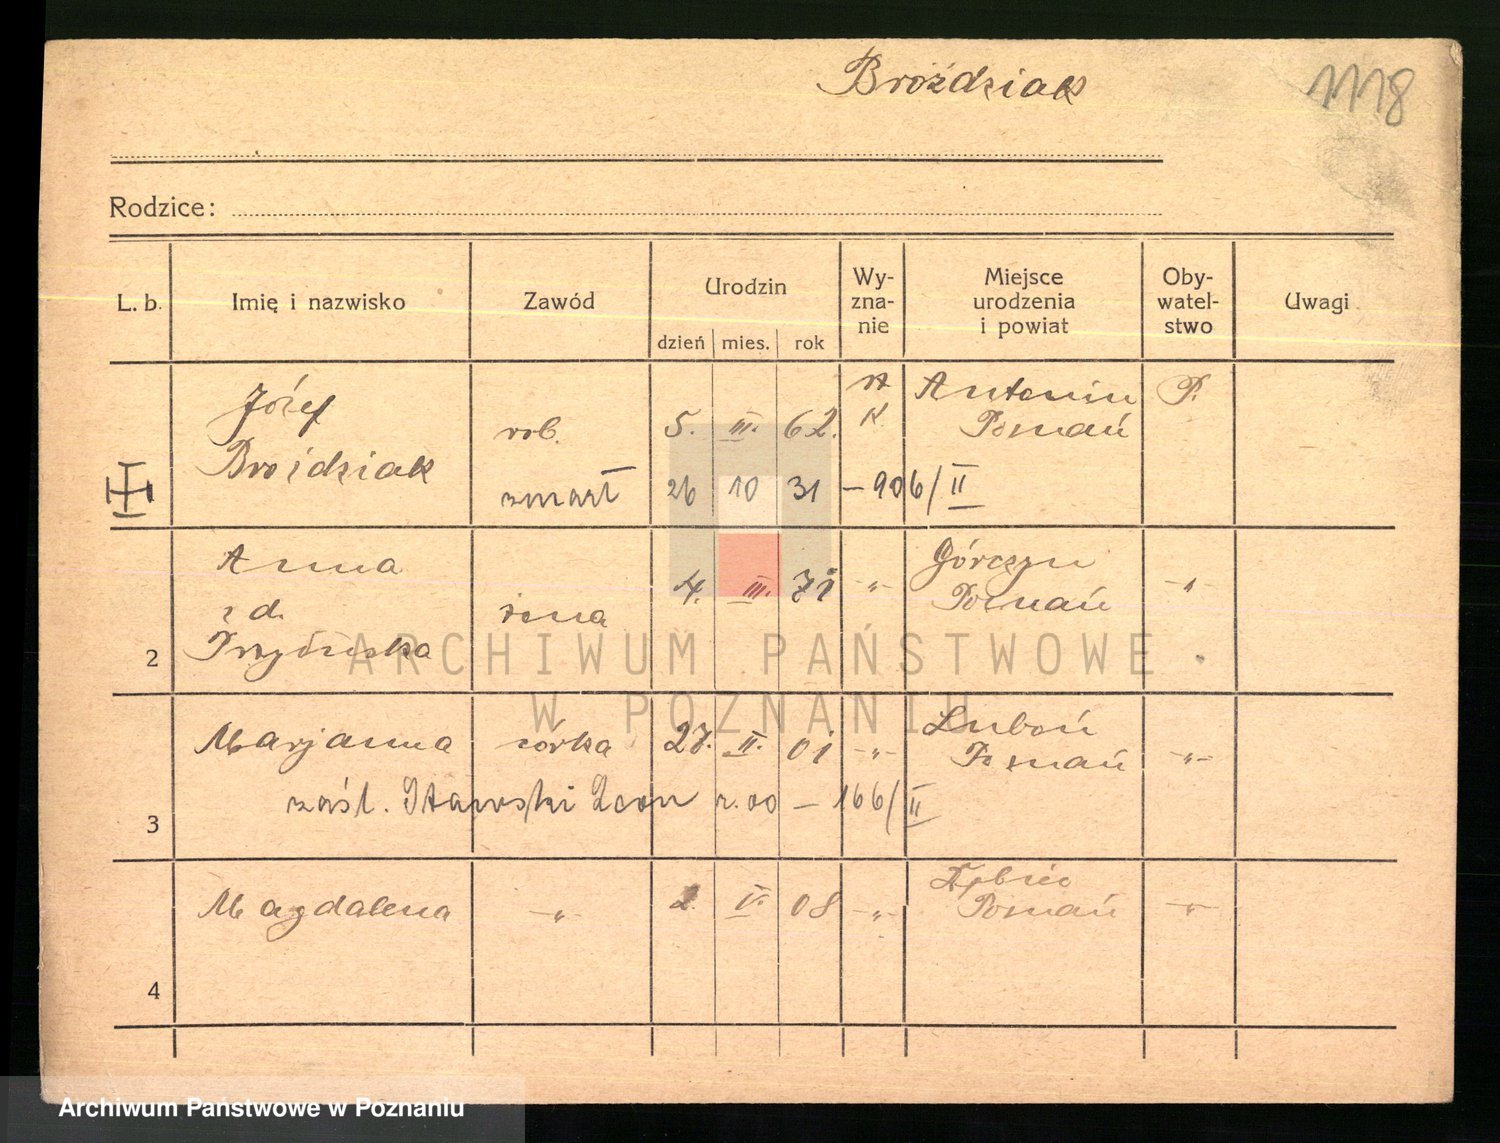 Broździak
1118
Rodzice:
L. b.
Imię i nazwisko
Zawód
Urodzin
dzień mies. rok
Wy-
zna-
nie
Miejsce
urodzenia
i powiat
Oby-
watel-
stwo
Uwagi
Józef
Broździak
rob.
5. III. 62.
Antonin
Poznań
P.
zmarł 26 10 31 – 906/II
Anna
z d.
żona
4. III. 71
-"-
Górczyn
Poznań
-"-
2
Marjanna córka 27. II. 01 -"-
Luboń
Poznań
-"-
zaśl. Stawski Leon r. 00 – 166/II
3
Magdalena -"- 2. V. 08 -"-
Dębiec
Poznań
-"-
4
ARCHIWUM PAŃSTWOWE
W POZNANIU
Archiwum Państwowe w Poznaniu